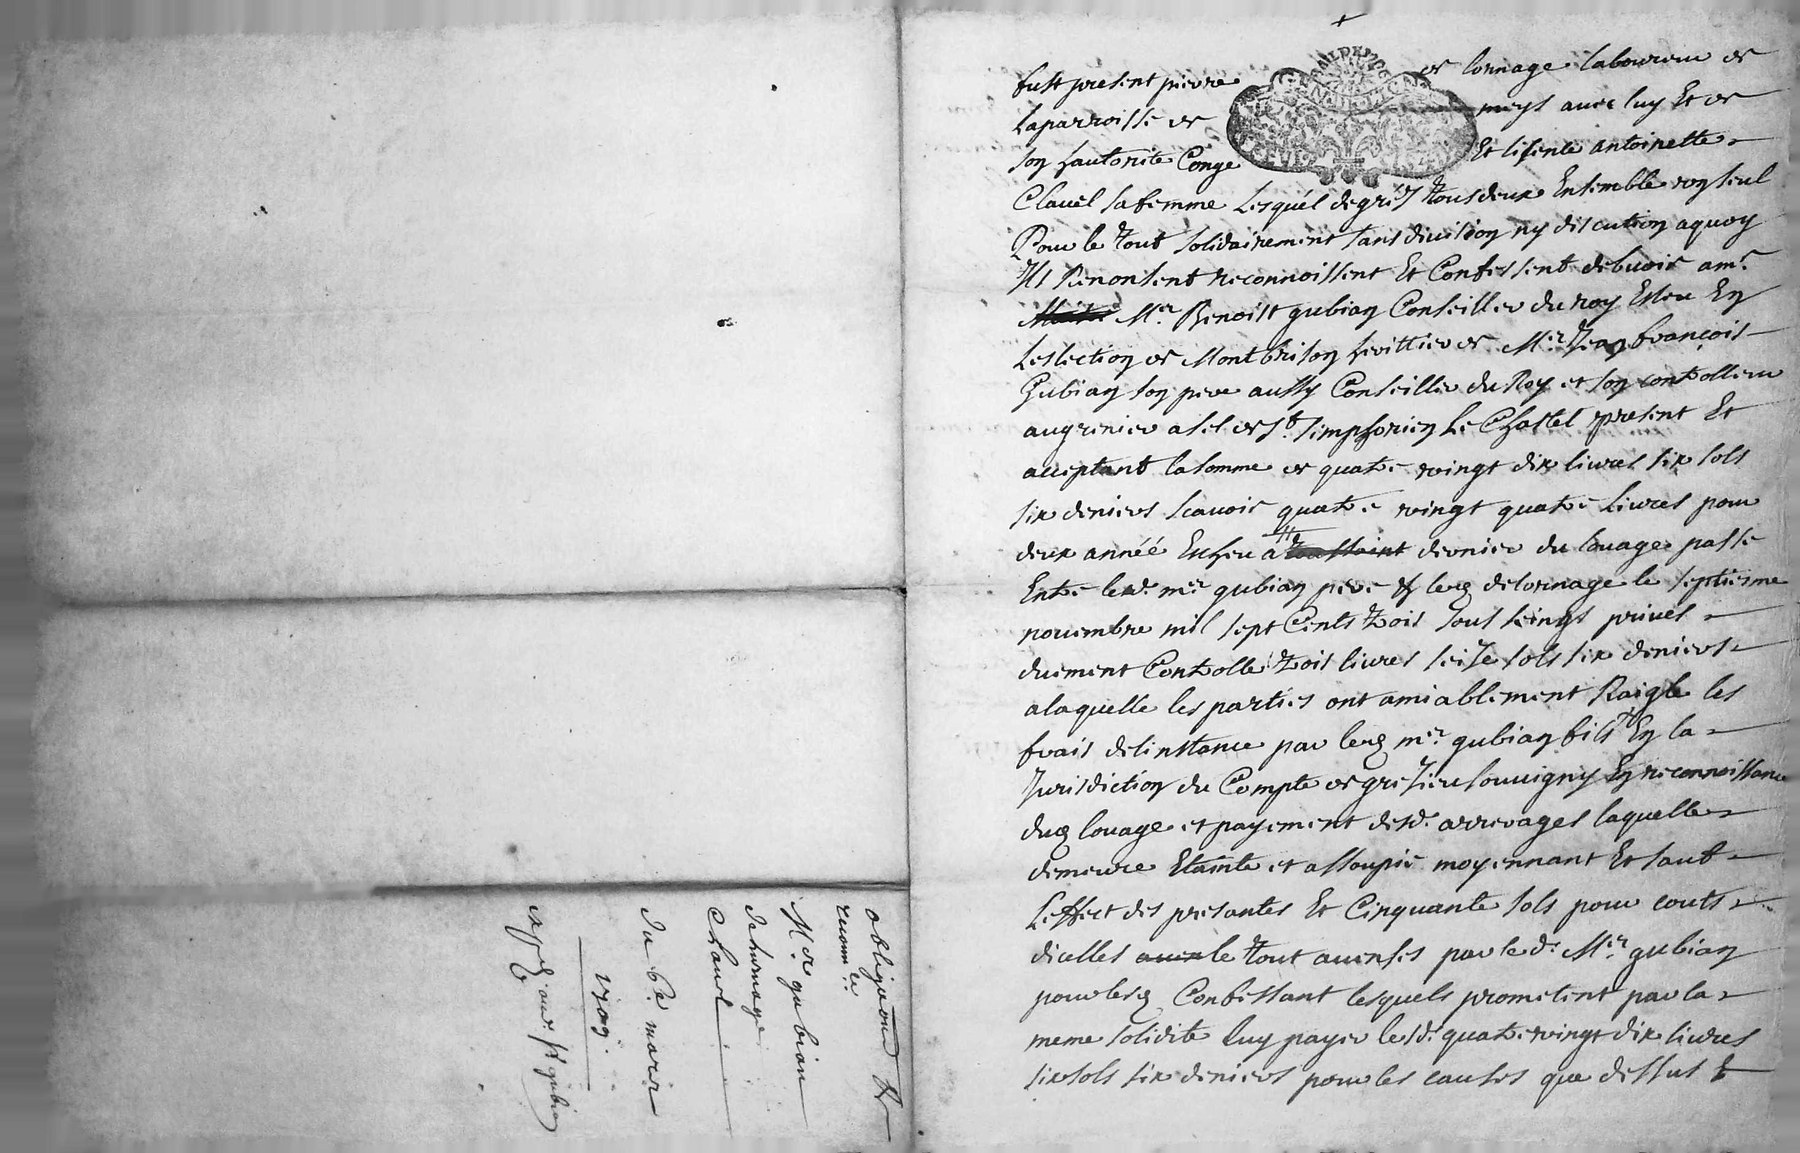 fust present pierre de lornage laboureur de
la parroisse de meys avec luy Et de
son hautorite Conge Et lisence antoinette
Clavel sa femme Lesquel de gréz tous deux Ensemble un seul
Pour le tout solidairement sans division ny discution a quoy
Ils Renonsent reconnoissent Et Confessent debvoir a mr
Mr Benoist gubian Conseiller du roy Esleu En
Leslection de Montbrison herittier de Mer Jean françois
Gubian son pere aussy Conseiller du Roy et son controlleur
au grenier a sel de st simphorien Le Chastel present Et
acceptant la somme de quatre vingt dix livres six sols
six deniers scavoir quatre vingt quatre Livres pour
deux année Escheu a toussaint dernier du louage passe
Entre led. mer gubian pere & led delornage le septiesme
novembre mil sept Cents trois sous seings privés
duement Controlle trois livres seize sols six deniers
a laquelle les parties ont amiablement Raigle les
frais de linstance par led mer gubian fils En la
Jurisdiction du Compte de grezieu souvigny En reconnoissance
dud louage et payement desd. arrerages laquelle
demeure Etainte et assoupie moyennant Et sauf
Leffect des presantes Et Cinquante sols pour couts
dicelles le tout avensés par le d. Mer gubian
pour lesd Confessant lesquels prometent par la
meme solidite luy payer les d. quatre vingt dix livres
six sols six deniers pour les causes que dessus &
obligaon
Mer gubian
delornage
Clavel
du 6e mars
1706